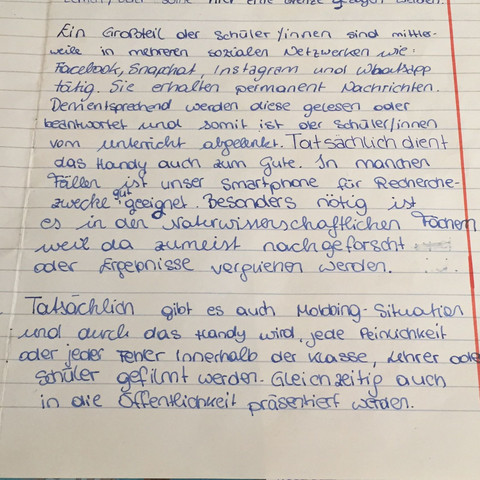 Ein Großteil der Schüler/innen sind mittler-
weile in mehreren sozialen Netzwerken wie:
Facebook, Snapchat, Instagram und WhatsApp
tätig. Sie erhalten permanent Nachrichten.
Dementsprechend werden diese gelesen oder
beantwortet und somit ist der Schüler/innen
vom unterricht abgelenkt. Tatsächlich dient
das Handy auch zum Gute. In manchen
Fällen ist unser Smartphone für Recherche-
zwecke gut geeignet. Besonders nötig ist
es in den Naturwissenschaftlichen Fächern
weil da zumeist nachgeforscht
oder Ergebnisse verglichen werden.
Tatsächlich gibt es auch Mobbing-Situation
und durch das Handy wird jede Peinlichkeit
oder jeder Fehler innerhalb der Klasse, Lehrer oder
Schüler gefilmt werden. Gleichzeitig auch
in die Öffentlichkeit präsentiert werden.